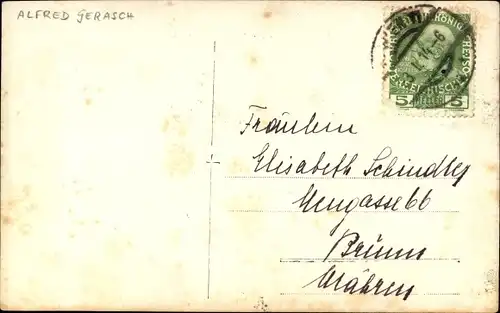 ALFRED GERASCH
5 HELLER 5
Fräulein
Elisabeth Schindler
Neugasse 66
Brünn
Mähren